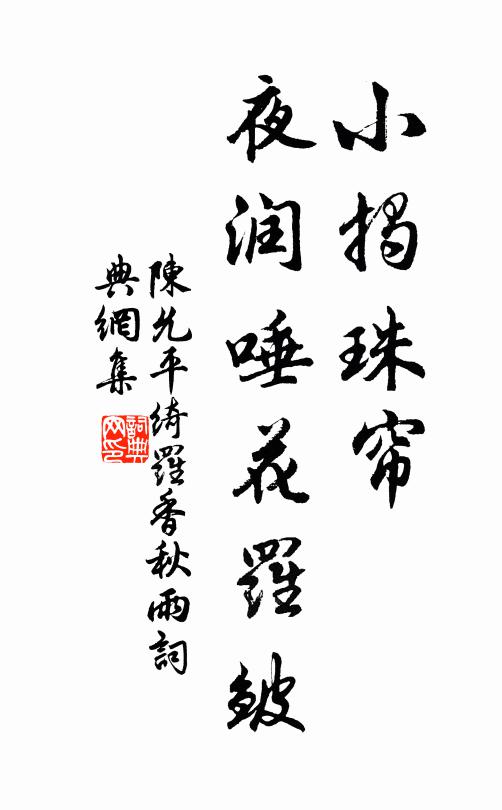 小揭珠帘
夜润唾花羅皺
陳允平綺羅香秋雨詞
典網集
詞典
网印